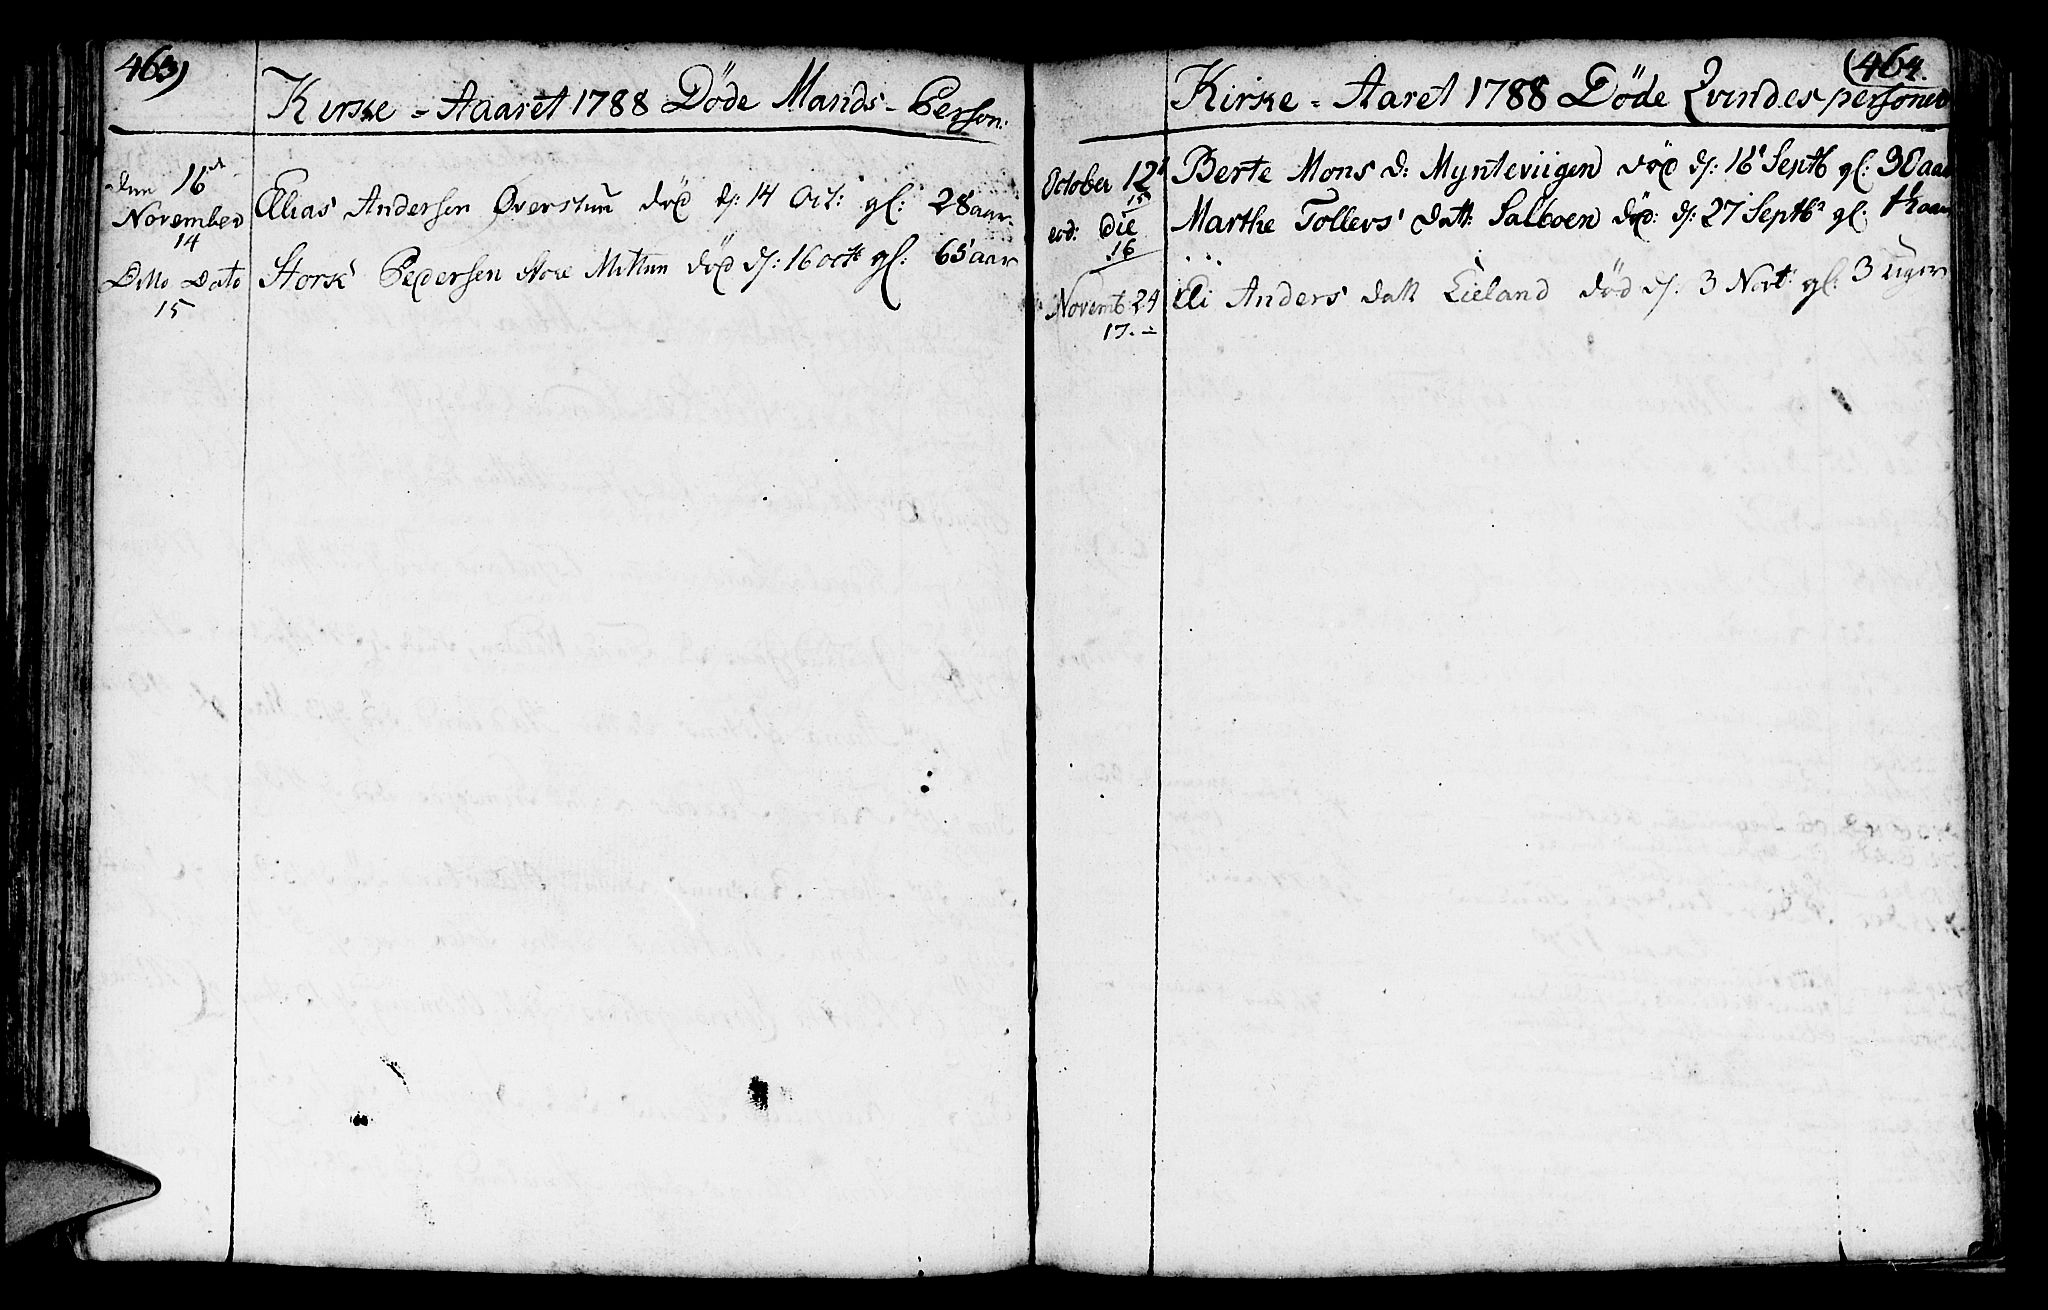 463)
Kirke - Aaaret 1788 Döde Mands - Person:
den 16d
November
14
Ellias Andersen Øverstun död d: 14 Oct: gl: 28 aar
Ditto Dato
15
Stork Pedersen store Mitun död d: 16 octb gl: 65 aar
(464.
Kirke - Aaret 1788 Döde Qvindespersoner
October 12t
15
Berte Mons D: Mynteviigen död d: 16 Septb gl: 30 aar
eod: Die
16
Marthe Tollers' datt: Salboen död: d: 27 Septb gl: aar
Novemb 24
17.
Eli Anders datt Lieland död d: 3 Novb gl: 3 uger